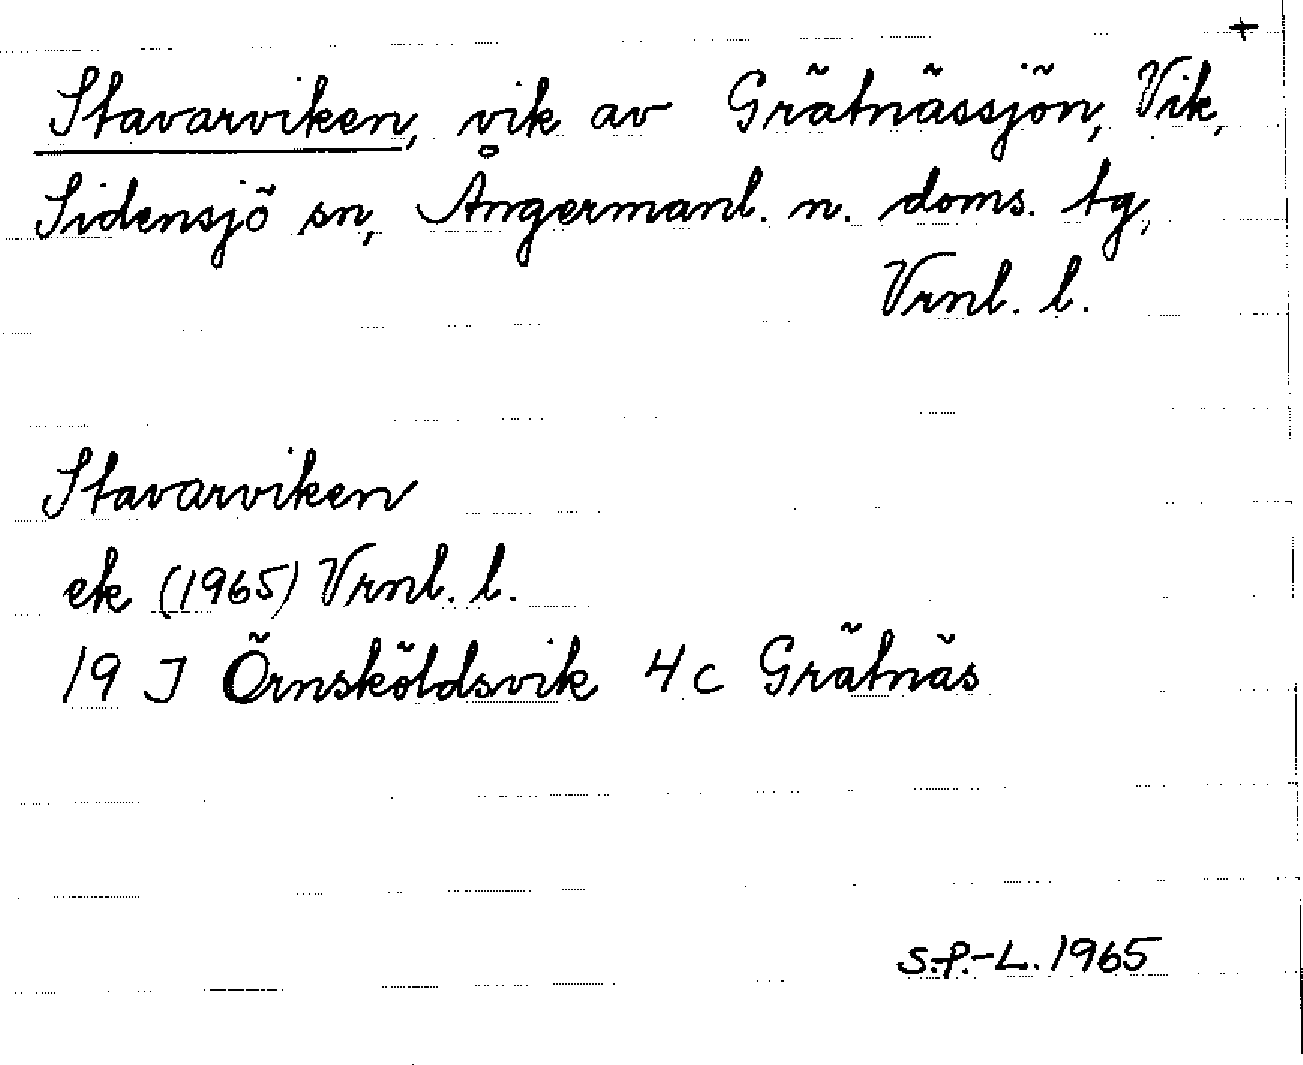 +
Stavarviken, vik av Grätnässjön, Vik,
Sidensjö sn, Ångermanl. n. doms. tg,
Vrnl. l.
Stavarviken
ek (1965) Vrnl. l.
19 J Örnsköldsvik 4 c Grätnäs
S.P.-L. 1965